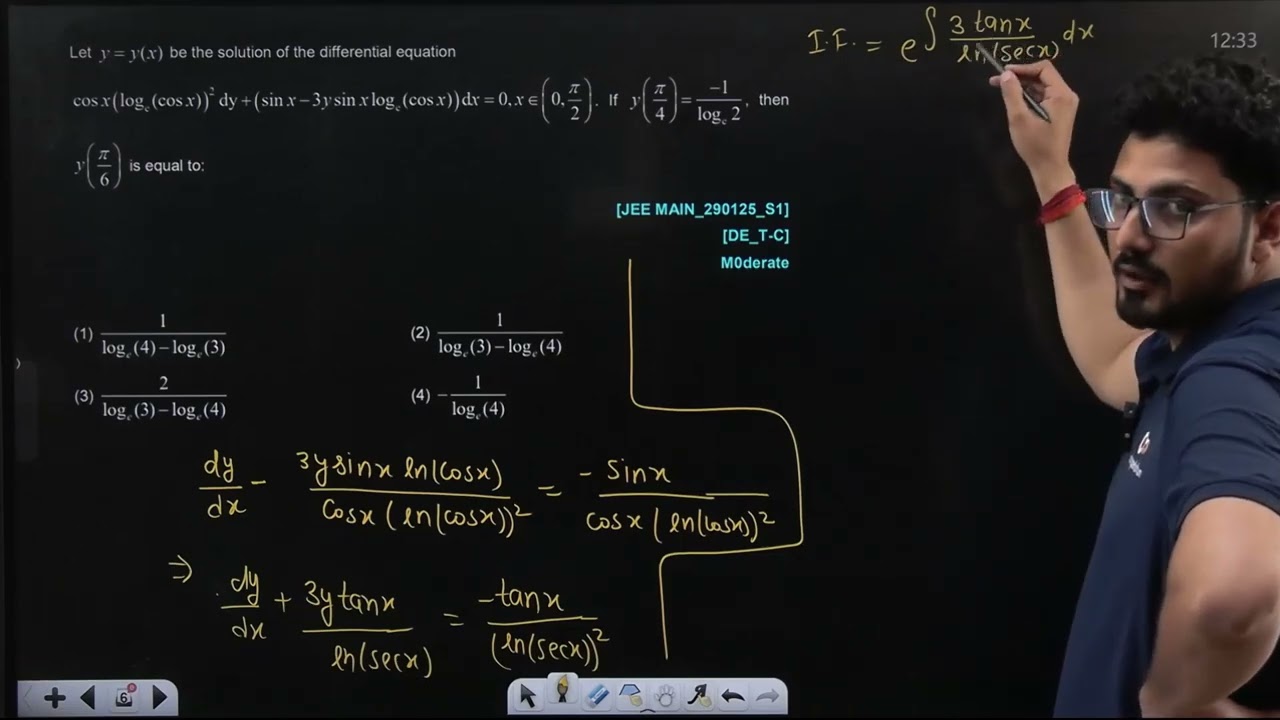 I.F. = e^∫ 3 tanx / ln(secx) dx
12:33
Let y = y(x) be the solution of the differential equation
cos x(logₑ(cos x))² dy + (sin x − 3y sin x logₑ(cos x))dx = 0, x ∈ (0, π/2). If y(π/4) = −1/logₑ 2, then
y(π/6) is equal to:
[JEE MAIN_290125_S1]
[DE_T-C]
M0derate
(1) 1/(logₑ(4) − logₑ(3)) (2) 1/(logₑ(3) − logₑ(4))
(3) 2/(logₑ(3) − logₑ(4)) (4) −1/logₑ(4)
dy/dx − 3y sinx ln(cosx) / cosx (ln(cosx))² = − sinx / cosx (ln(cosx))²
⇒ dy/dx + 3y tanx / ln(secx) = −tanx / (ln(secx))²
6